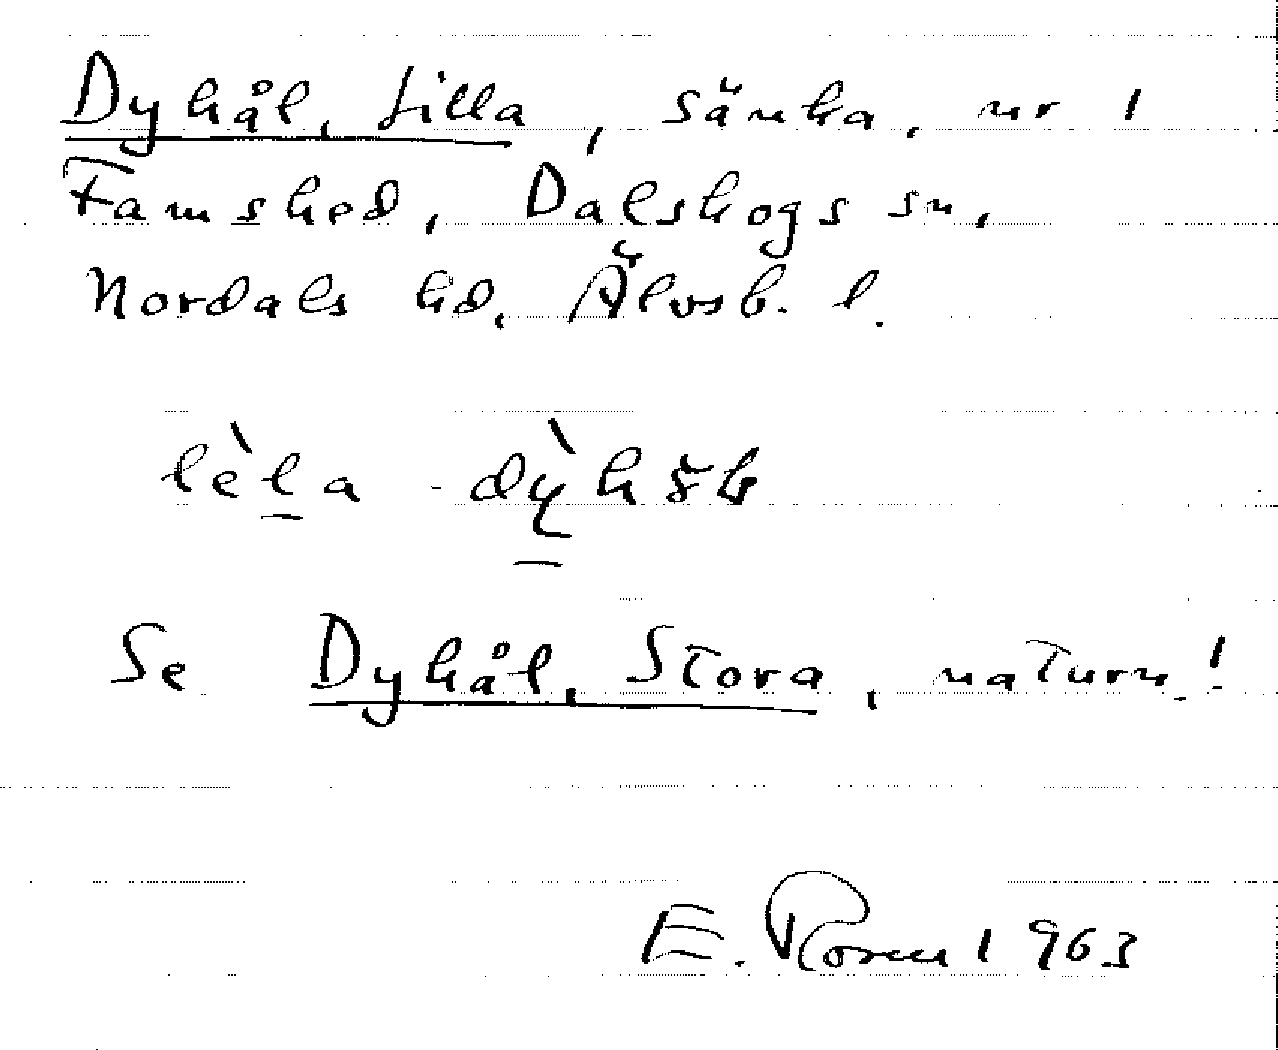 Dyhål, Lilla, sänka, nr 1
Famshed, Dalskogs sn,
Nordals hd, Älvsb. l.
Se Dyhål, Stora, naturn!
E. Rosen 1963